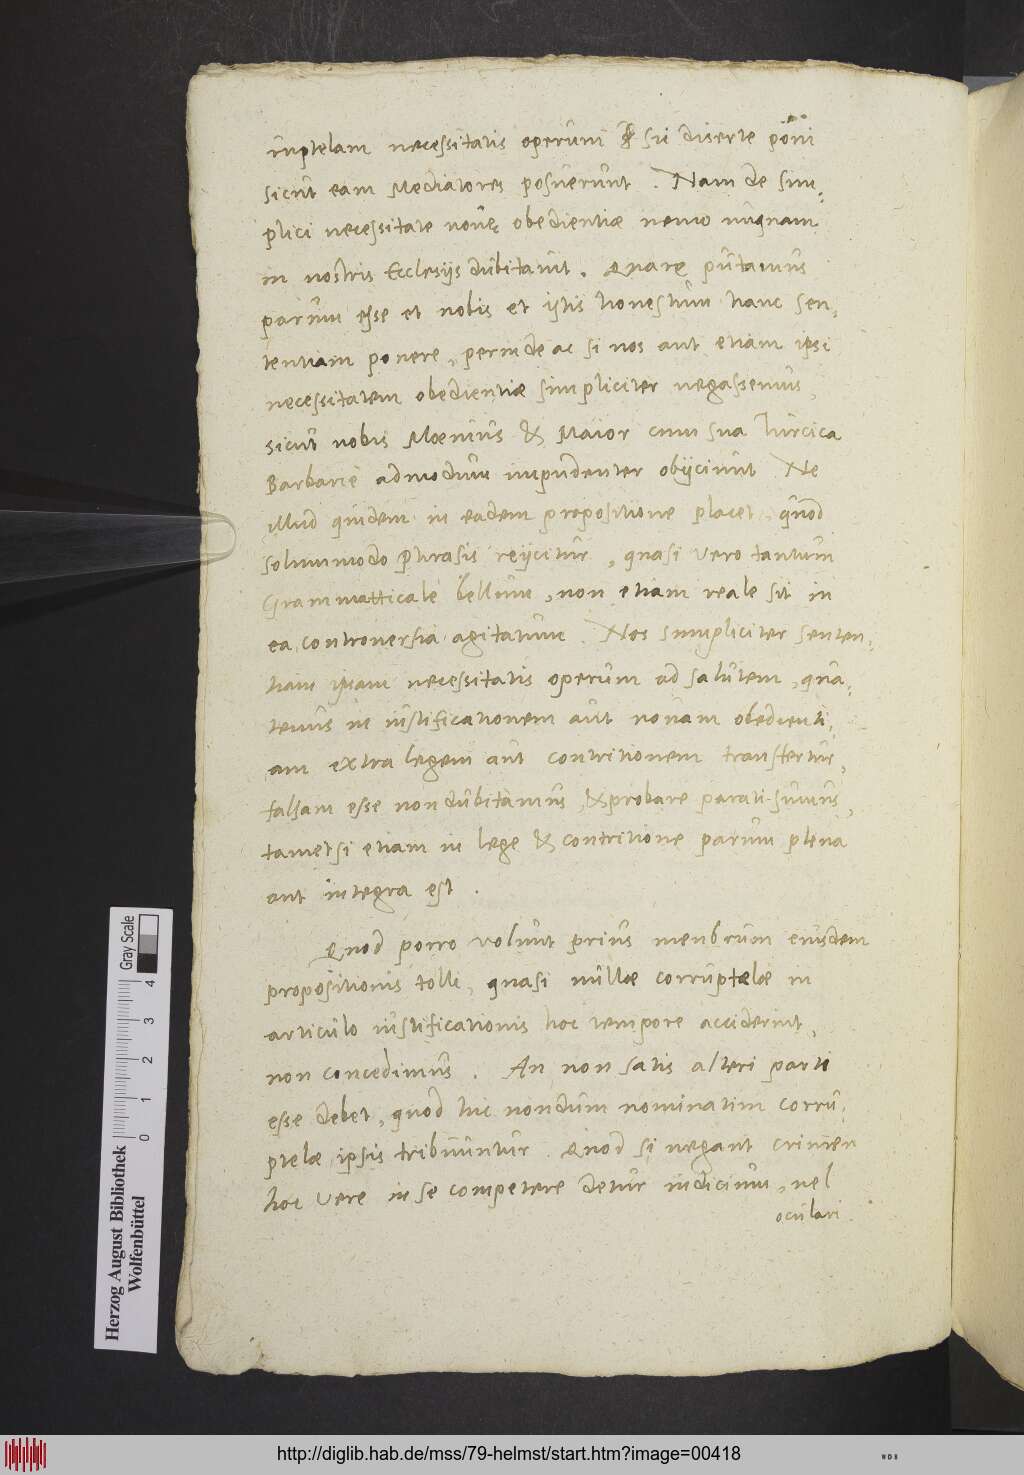 ruptelam necessitatis operum sui diserte poni
sicut eam Mediatores posuerunt. Nam de sim-
plici necessitate novę obedientiæ nemo unquam
in nostris Ecclesijs dubitavit. Quare putamus
parum esse et nobis et istis honestum hanc sen-
tentiam ponere, perinde ac si nos aut etiam ipsi
necessitatem obedientiæ simpliciter negassemus,
sicut nobis Moenius & Maior cum sua Turcica
Barbarie admodum impudenter obijciunt Ne
illud quidem in eadem propositione placet, quod
solummodo phrasis reijcitur, quasi vero tantum
Grammatticale bellum, non etiam reale sit in
ea controuersia agitatum. Nos simpliciter senten-
tiam ipsam necessitatis operum ad salutem, qua-
tenus in iustificationem aut nouam obedienti-
am extra legem aut contritionem transfertur,
falsam esse non dubitamus, & probare parati sumus,
tametsi etiam in lege & contritione parum plena
aut integra est.
Quod porro volunt prius menbrum eiusdem
propositionis tolli, quasi nullæ corruptelæ in
articulo iustificationis hoc tempore acciderint,
non concedimus. An non satis alteri parti
esse debet, quod hic nondum nominatim corru-
ptelæ ipsis tribuuntur. Quod si negant crimen
hoc vere in se competere detur iudicium, uel
oculari
Gray Scale
0 1 2 3 4
Herzog August Bibliothek
Wolfenbüttel
http://diglib.hab.de/mss/79-helmst/start.htm?image=00418
WDB